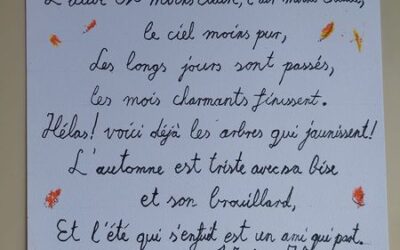 moins pur,
le ciel moins pur,
Les longs jours sont passés,
les mois charmants finissent.
Hélas! voici déjà les arbres qui jaunissent!
L'automne est triste avec sa bise
et son brouillard,
Et l'été qui s'enfuit est un ami qui part.